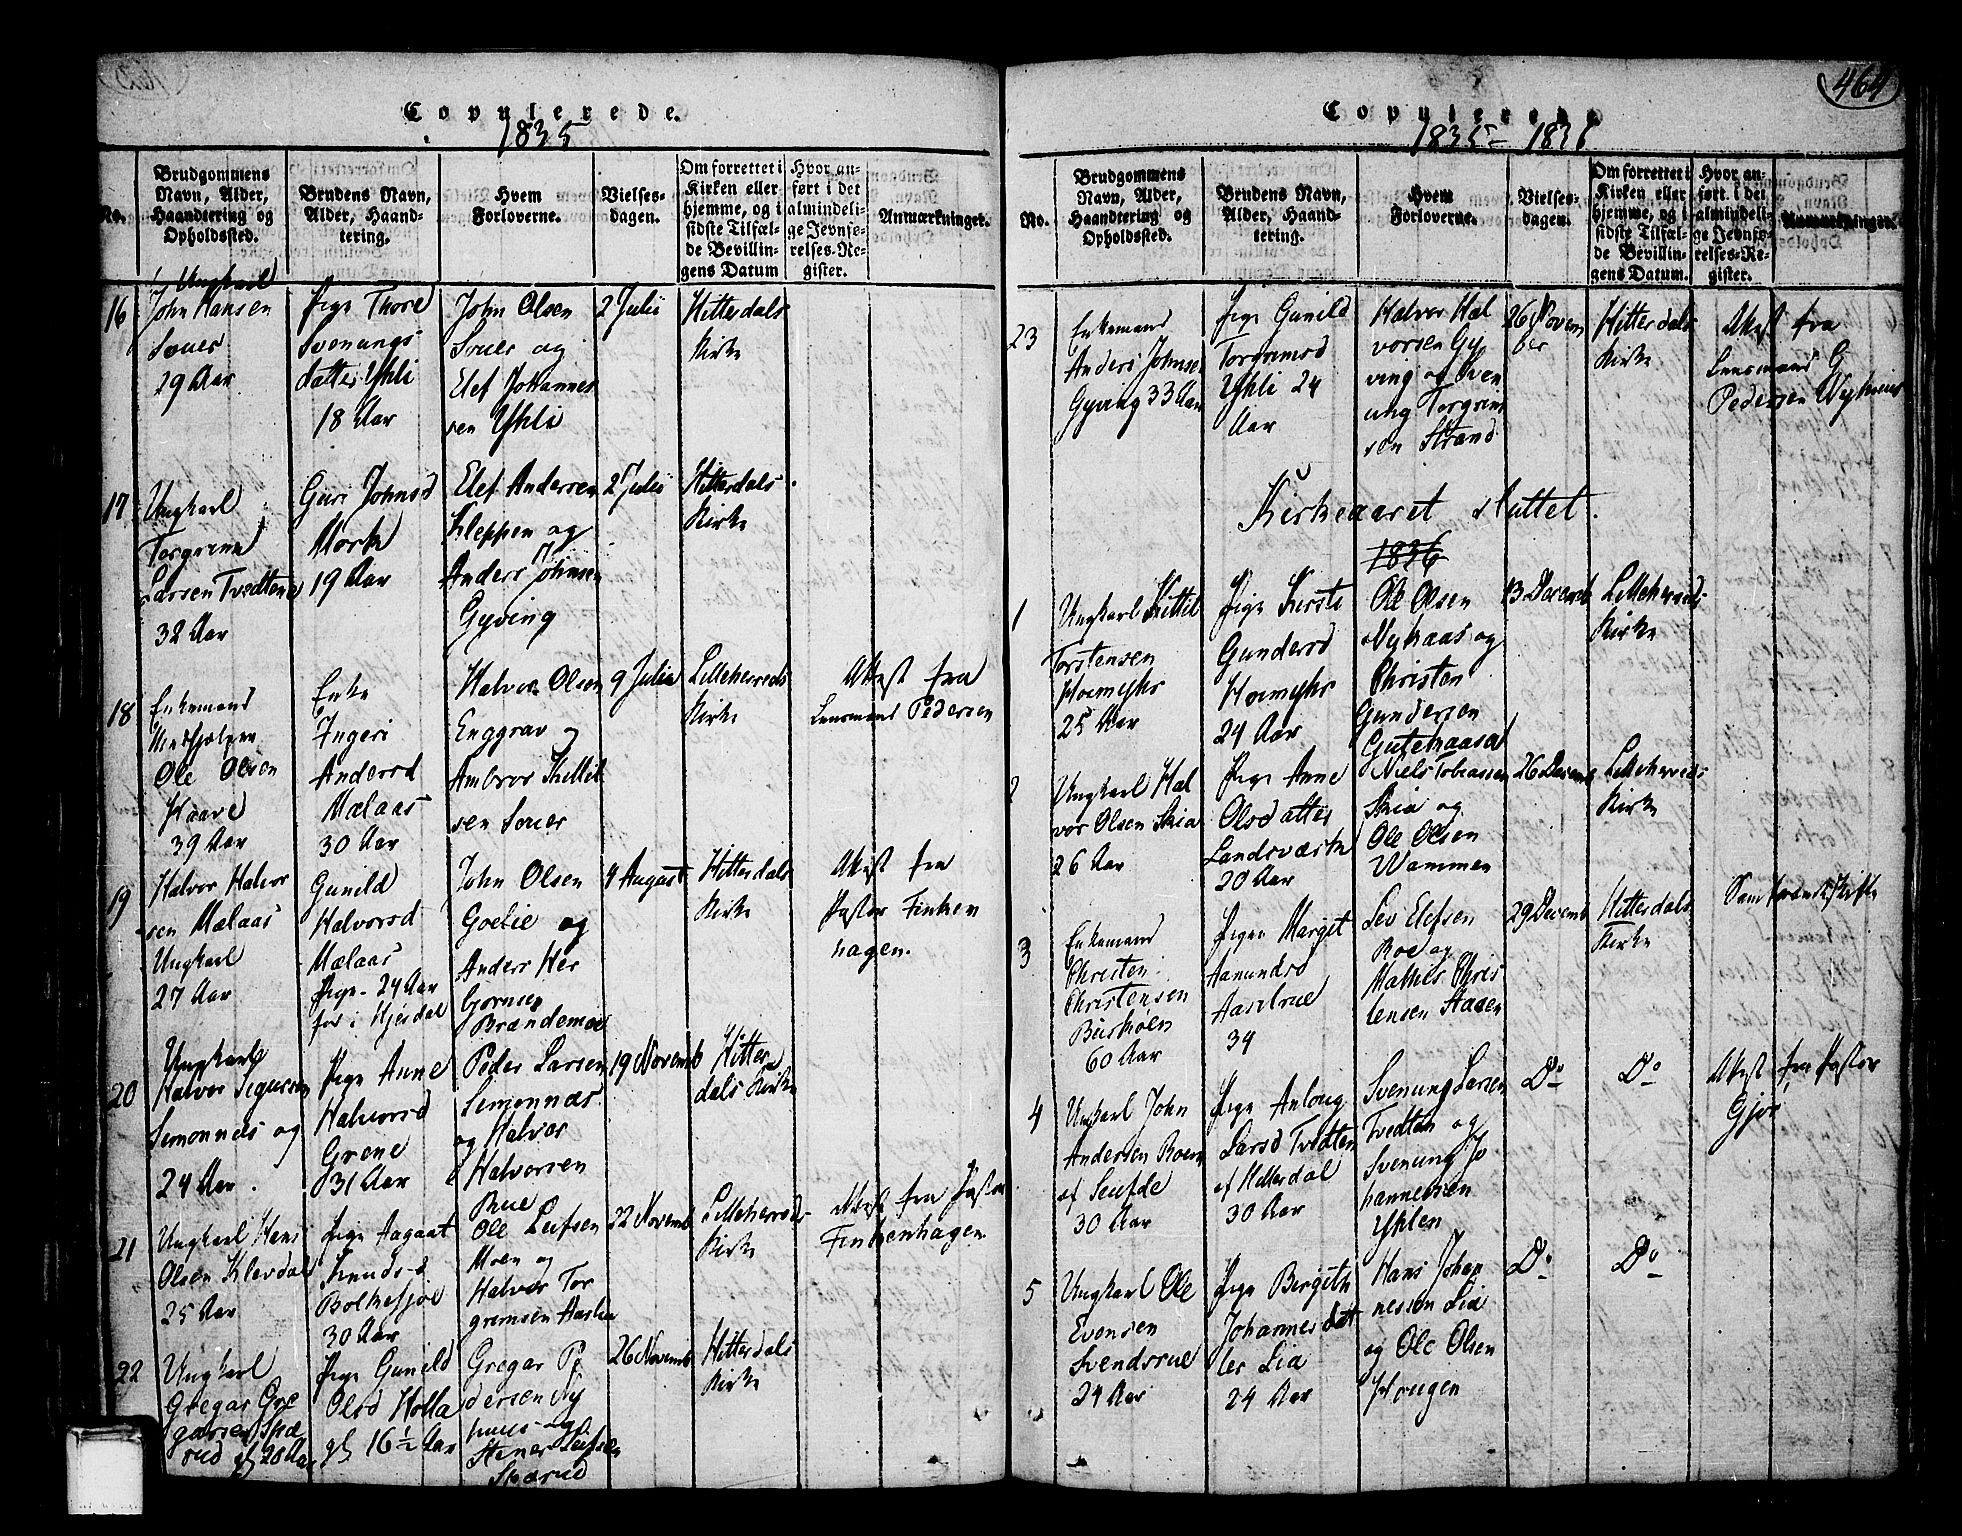 464
Copulerede.
1835
No.
Brudgommens Navn, Alder, Haandtering og Opholdssted.
Brudens Navn, Alder, Haandtering.
Hvem Forloverne.
Vielsesdagen.
Om forrettet i Kirken eller hjemme, og i sidste Tilfælde Bevillingens Datum
Hvor anført i det almindelige Jevnførelses-Register.
Anmærkninger.
16
Ungkarl
John Hansen
Souer
29 Aar
Pige Thore
Svenungs
datter Yhli
18 Aar
John Olsen
Souer og
Elef Johannes
sen Yhli
2 Julii
Hitterdals
Kirke
17
Ungkarl
Torgrim
Larsen Tvedtene
32 Aar
Guri Johnsd
Mork
19 Aar
Elef Andersen
Kleppen og
Anders Johnsen
Gyving
2 Julii
Hitterdals
Kirke
18
Enkemand
Ole Olsen
Haave
39 Aar
Enke
Ingeri
Andersd
Mælaas
30 Aar
Halvor Olsen
Enggrav og
Ambros Kittil
sen Souer
9 Julii
Lilleherreds
Kirke
Attest fra
Lensmand Pedersen
19
Halvor Halvor
sen Mælaas
Ungkarl
27 Aar
Gunild
Halvorsd
Mælaas
Pige 24 Aar
før i Hjerdal
John Olsen
Goelie og
Anders Her
Gornsen
Brændemoe
4 August
Hitterdals
Kirke
Attest fra
Pastor Finken
hagen.
20
Ungkarl
Halvor Sigursen
Semonnæs og
24 Aar.
Pige Anne
Halvorsd
Grene
31 Aar
Peder Larsen
Semonnæs
og Halvor
Halvorsen
Rue
19 Novemb
Hitter
dals Kirke
21
Ungkarl Hans
Olsen Klevdal
25 Aar
Pige Aagaat
Knuds d
Bolkesjøe
30 Aar
Ole Leifsen
Moen og
Halvor Tor
gremsen Aaslia
22 Novemb
Lilleherreds
Kirke
Attest fra Pastor
Finkenhagen
22
Ungkarl
Gregar Gre
garsen Spæ
rud gl 20 Aar
Pige Gunild
Olsd Holla
gl 16½ Aar
Gregar Pe
dersen Ny
huus og
Stener Leifsen
Spærud
26 Novemb
Hitterdals
Kirke
Copulerede
1835 - 1836
No.
Brudgommens Navn, Alder, Haandtering og Opholdssted.
Brudens Navn, Alder, Haandtering.
Hvem Forloverne.
Vielsesdagen.
Om forrettet i Kirken eller hjemme, og i sidste Tilfælde Bevillingens Datum.
Hvor anført i det almindelige Jevnførelses-Register.
Anmærkninger.
23
Enkemand
Anders Johnsen
Gyving 33 Aar
Pige Gunild
Torgrimsd
Yhli 24
Aar
Halvor Hal
vorsen Gy
ving og Sven
ung Torgrim
sen Strand
26 Novem
ber
Hitterdals
Kirke
Attest fra
Lensmand G
Pedersen
Kirkeaaret sluttet.
1836
1
Ungkarl Kittil
Torstensen
Hoemyhr
25 Aar
Pige Kirsti
Gundersd
Hoemyhr
24 Aar
Ole Olsen
Nykaas og
Christen
Gundersen
13 Decemb
Lilleherreds
Kirke
2
Ungkarl Hal
vor Olsen Skia
26 Aar
Pige Anne
Olsdatter
Landsværk
20 Aar
Niels Tobiassen
Skia og
Ole Olsen
Wammen
26 Decemb
Lilleherreds
Kirke
3
Enkemand
Christen
Christensen
Buskoen
60 Aar
Pigen Margit
Aamundsd
Aaselrue
34
Lev Elefsen
Roe og
Mathis Chris
tensen Haaen
29 Decemb
Hitterdals
Kirke
Samfrændeskifte
4
Ungkarl John
Andersen Roen
af Seufde
30 Aar
Pige Anlaug
Larsd Tvedten
af Hitterdal
30 Aar
Svenung Larsen
Tvedten og
Svenung Jo
hannessen
Yhlen
Do
Do
Attest fra Pastor
Gjør
5
Ungkarl Ole
Evensen
Svendsrue
24 Aar
Pige Bergith
Johannesdat
ter Lia
24 Aar
Hans Johan
nessen Lia
og Ole Olsen
Haugen
Do
Do